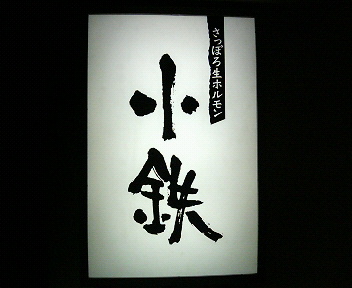 さっぽろ生ホルモン
小鉄